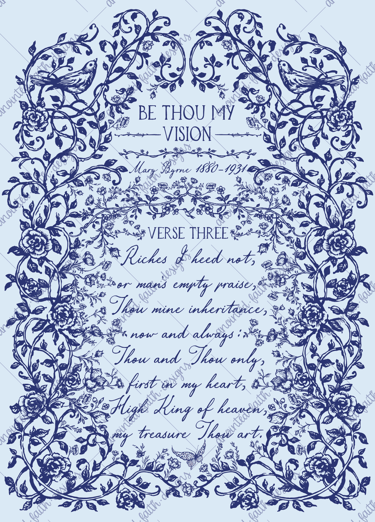 BE THOU MY
VISION
Mary Byrne 1880-1931
VERSE THREE
Riches I heed not,
or mans empty praise,
Thou mine inheritance,
now and always:
Thou and Thou only,
first in my heart,
High King of heaven,
my treasure Thou art.